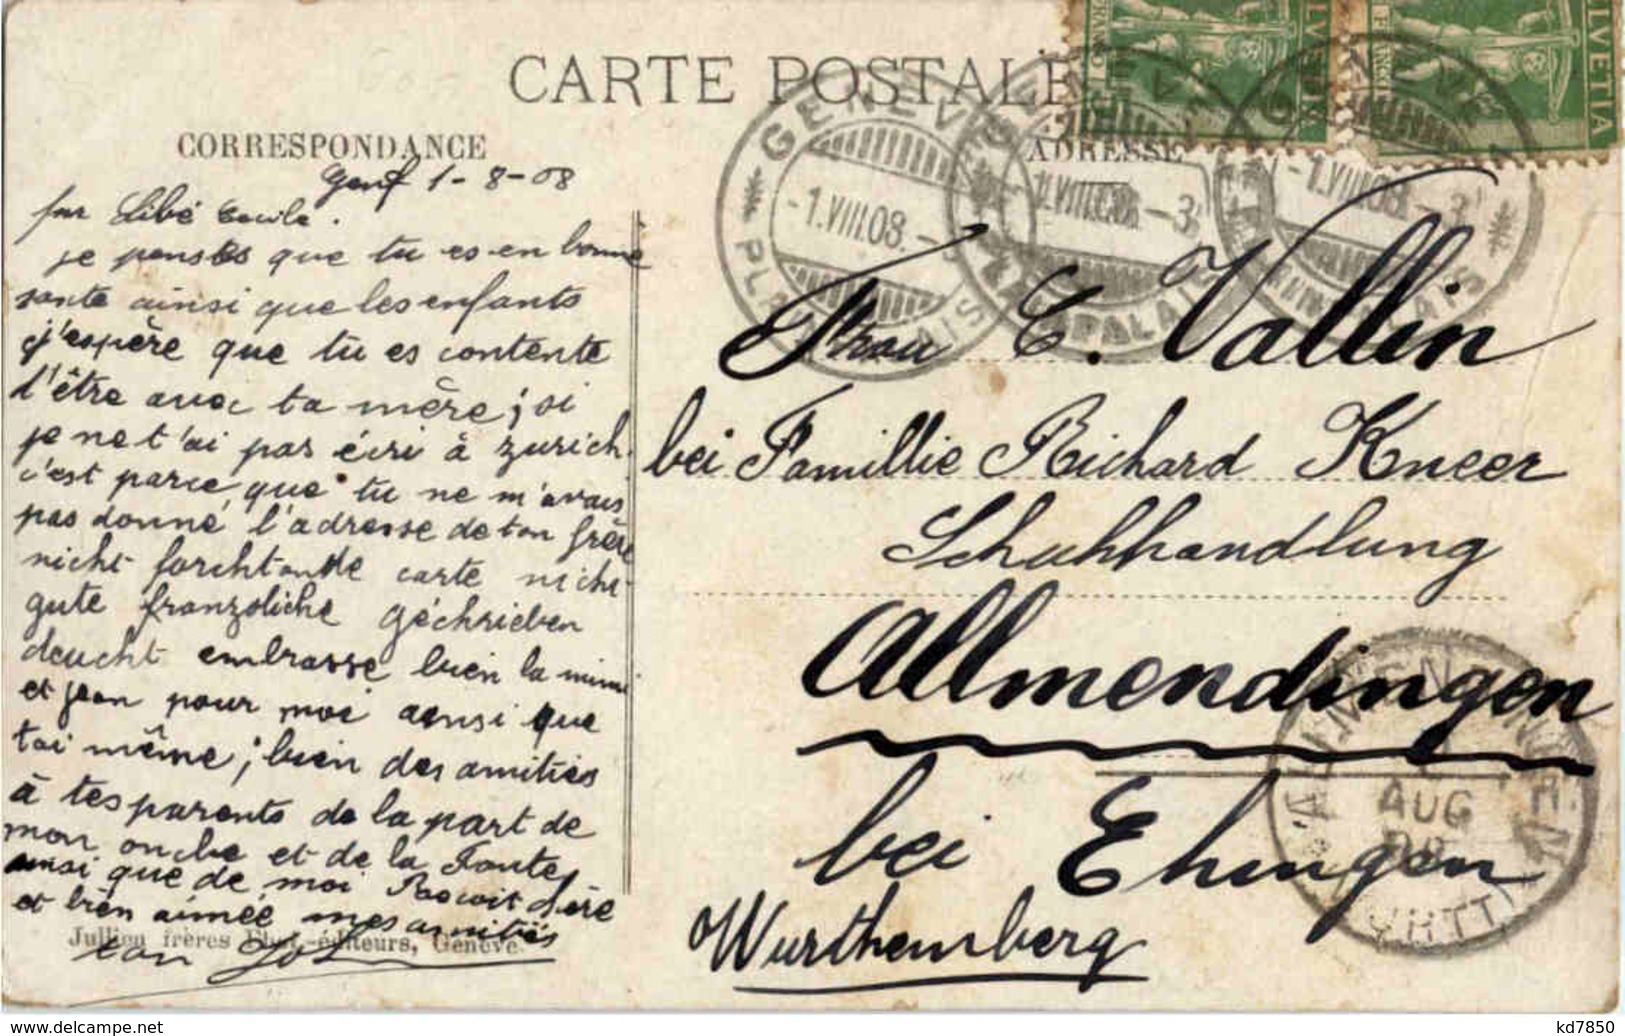 CARTE POSTALE
CORRESPONDANCE
ADRESSE
HELVETIA
HELVETIA
GENEVE
-1.VIII.08.-
PL. PALAIS
-1.VIII.08.-3
-1.VIII.08.-3
Genf 1-8-08
fur Libé Cecile.
je penses que tu es en bonne
sante ainsi que les enfants
j'espère que tu es contente
d'être avec ta mère; si
je ne t'ai pas écri à zurich.
c'est parce que tu ne m'avais
pas donné l'adresse de ton frère
nicht forchtande carte nicht
gute französliche géchrieben
deucht embrasse bien la mimi
et jean pour moi ainsi que
toi même; bien des amitiés
à tes parents de la part de
mon oncle et de la Tante
ainsi que de moi Recoit chère
et bien aimée mes amitiés
ton
Jullien frères Phot.-éditeurs, Genève
Frau C. Vallin
bei Famillie Richard Kneer
Schuhhandlung
Allmendingen
bei Ehingen
Wurthemberg
ALLMENDINGEN
AUG
08
WÜRTT
kd7850